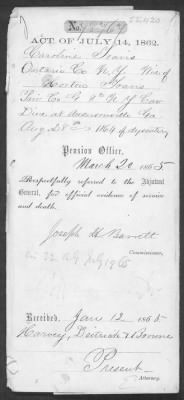 No.
ACT OF JULY 14, 1862.
Caroline Ivans
Ontario Co N.Y. Wid of
Horton Ivans
Priv Co G 8th N.Y. Cav
Died at Andersonville Ga
Aug 28th 1864 of dysentery
Pension Office,
March 20 1865
Respectfully referred to the Adjutant
General, for official evidence of service
and death.
Joseph H Barrett
Commissioner.
22 AG July 1865
Received, Jan 12 1865
Harvey, Deitrich & Browne
Present
Attorney.